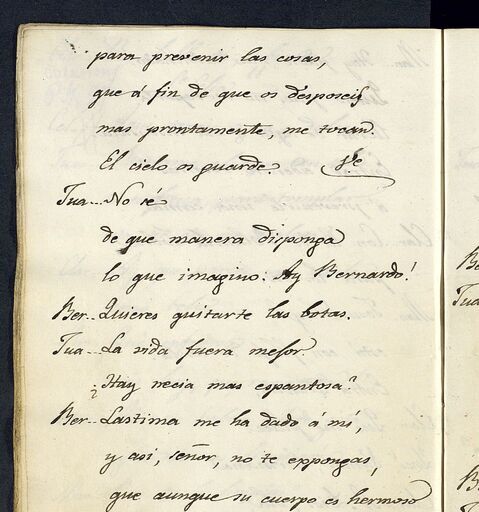 para prevenir las cosas,
que á fin de que os desposeis
mas prontamente, me tocan.
El cielo os guarde. Vse
Jua... No sé
de que manera disponga
lo que imagino: Ay Bernardo!
Ber.. Quieres quitarte las botas.
Jua... La vida fuera mejor.
¿Hay necia mas espantosa?
Ber.. Lastima me ha dado á mí,
y asi, señor, no te expongas,
que aunque su cuerpo es hermoso
Be
Jua
B